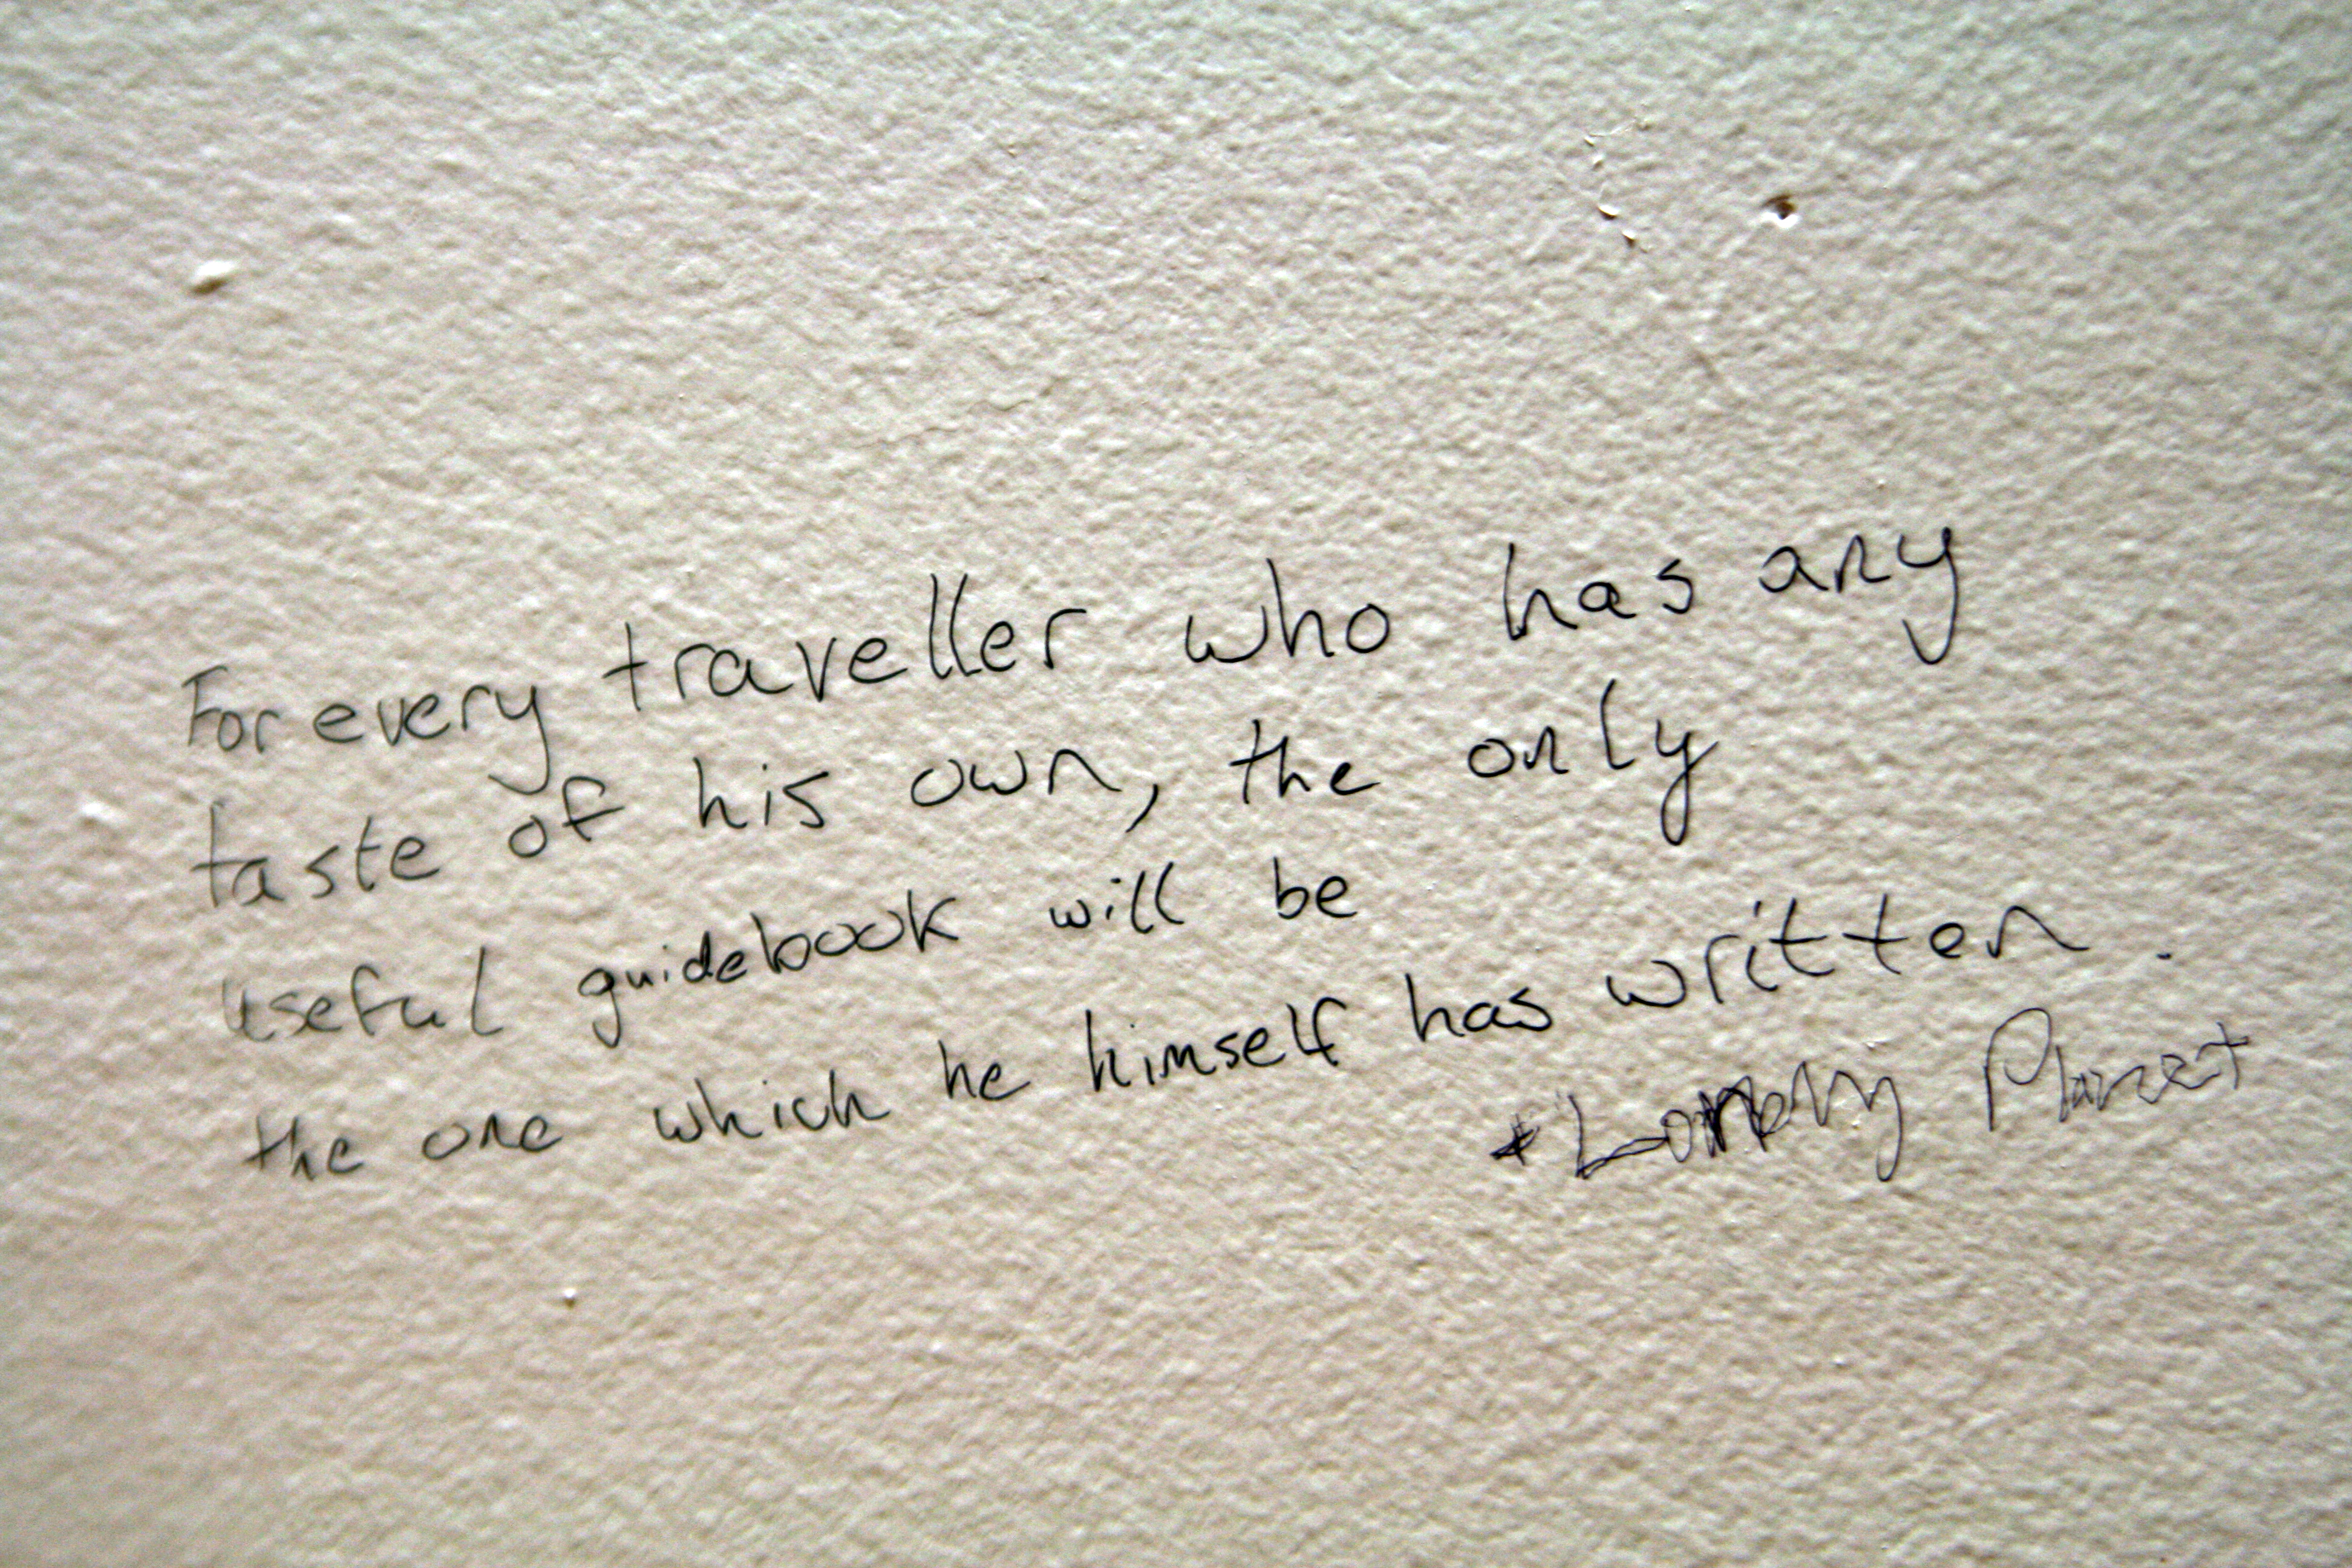 For every traveller who has any
taste of his own, the only
useful guidebook will be
the one which he himself has written.
* Lonely Planet